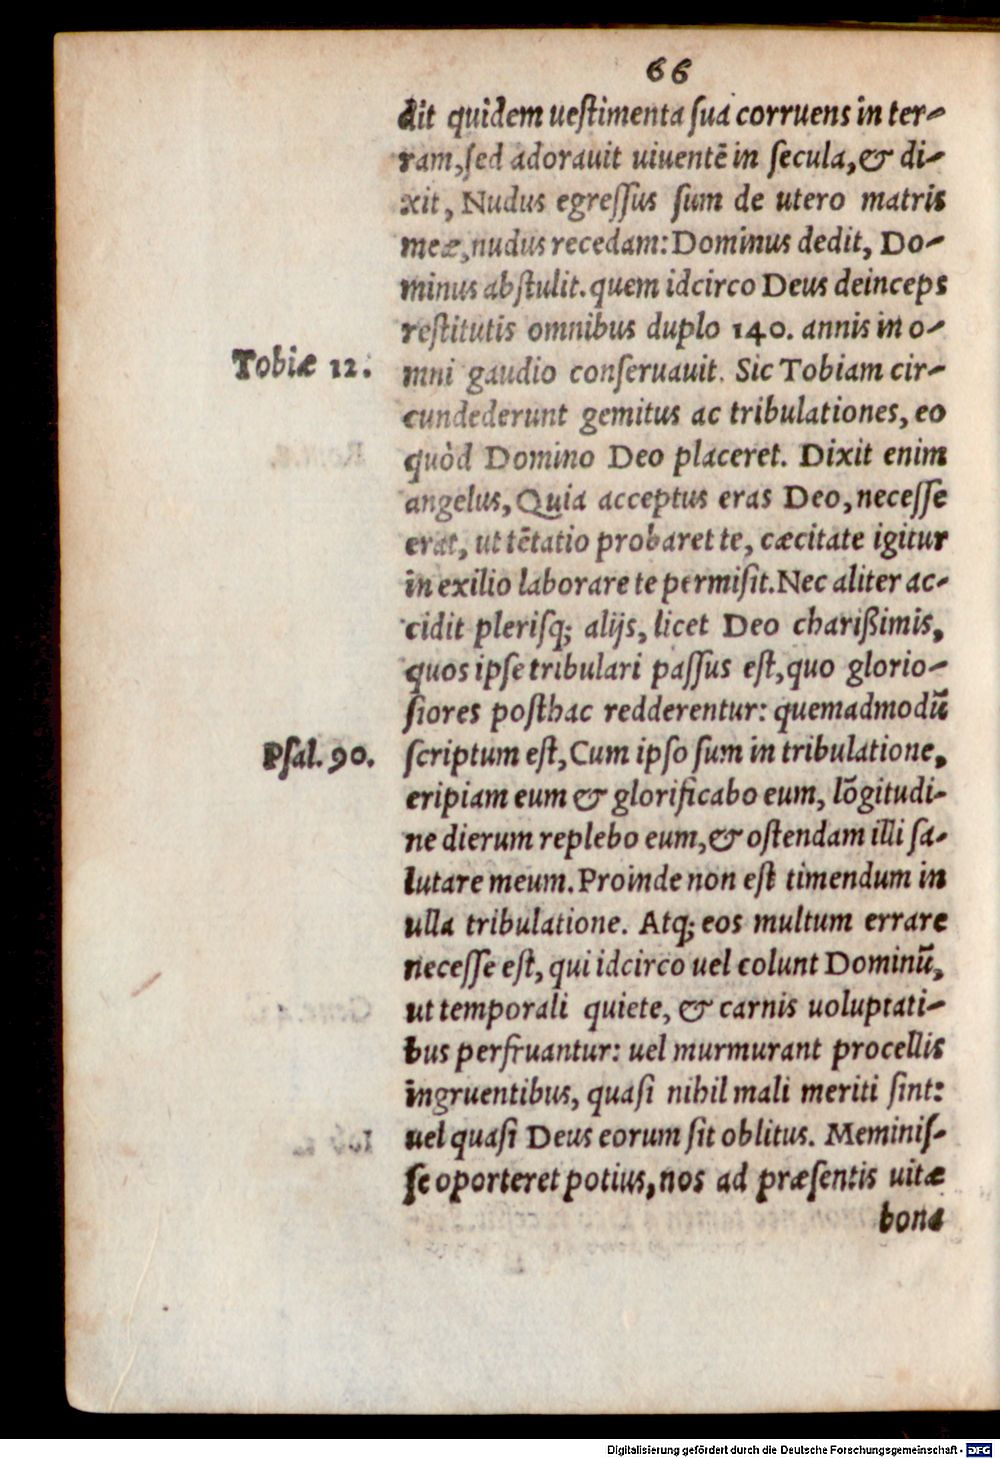 66
dit quidem uestimenta sua corruens in ter-
ram, sed adorauit uiuentē in secula, & di-
xit, Nudus egressus sum de utero matris
meæ, nudus recedam: Dominus dedit, Do-
minus abstulit. quem idcirco Deus deinceps
restitutis omnibus duplo 140. annis in o-
Tobiæ 12.
mni gaudio conseruauit. Sic Tobiam cir-
cundederunt gemitus ac tribulationes, eo
quòd Domino Deo placeret. Dixit enim
angelus, Quia acceptus eras Deo, necesse
erat, ut tētatio probaret te, cæcitate igitur
in exilio laborare te permisit. Nec aliter ac-
cidit plerisq; alijs, licet Deo charißimis,
quos ipse tribulari passus est, quo glorio-
siores posthac redderentur: quemadmodū
Psal. 90.
scriptum est, Cum ipso sum in tribulatione,
eripiam eum & glorificabo eum, lōgitudi-
ne dierum replebo eum, & ostendam illi sa-
lutare meum. Proinde non est timendum in
ulla tribulatione. Atq; eos multum errare
necesse est, qui idcirco uel colunt Dominū,
ut temporali quiete, & carnis uoluptati-
bus perfruantur: uel murmurant procellis
ingruentibus, quasi nihil mali meriti sint:
uel quasi Deus eorum sit oblitus. Meminis-
se oporteret potius, nos ad præsentis uitæ
bona
Digitalisierung gefördert durch die Deutsche Forschungsgemeinschaft - DFG